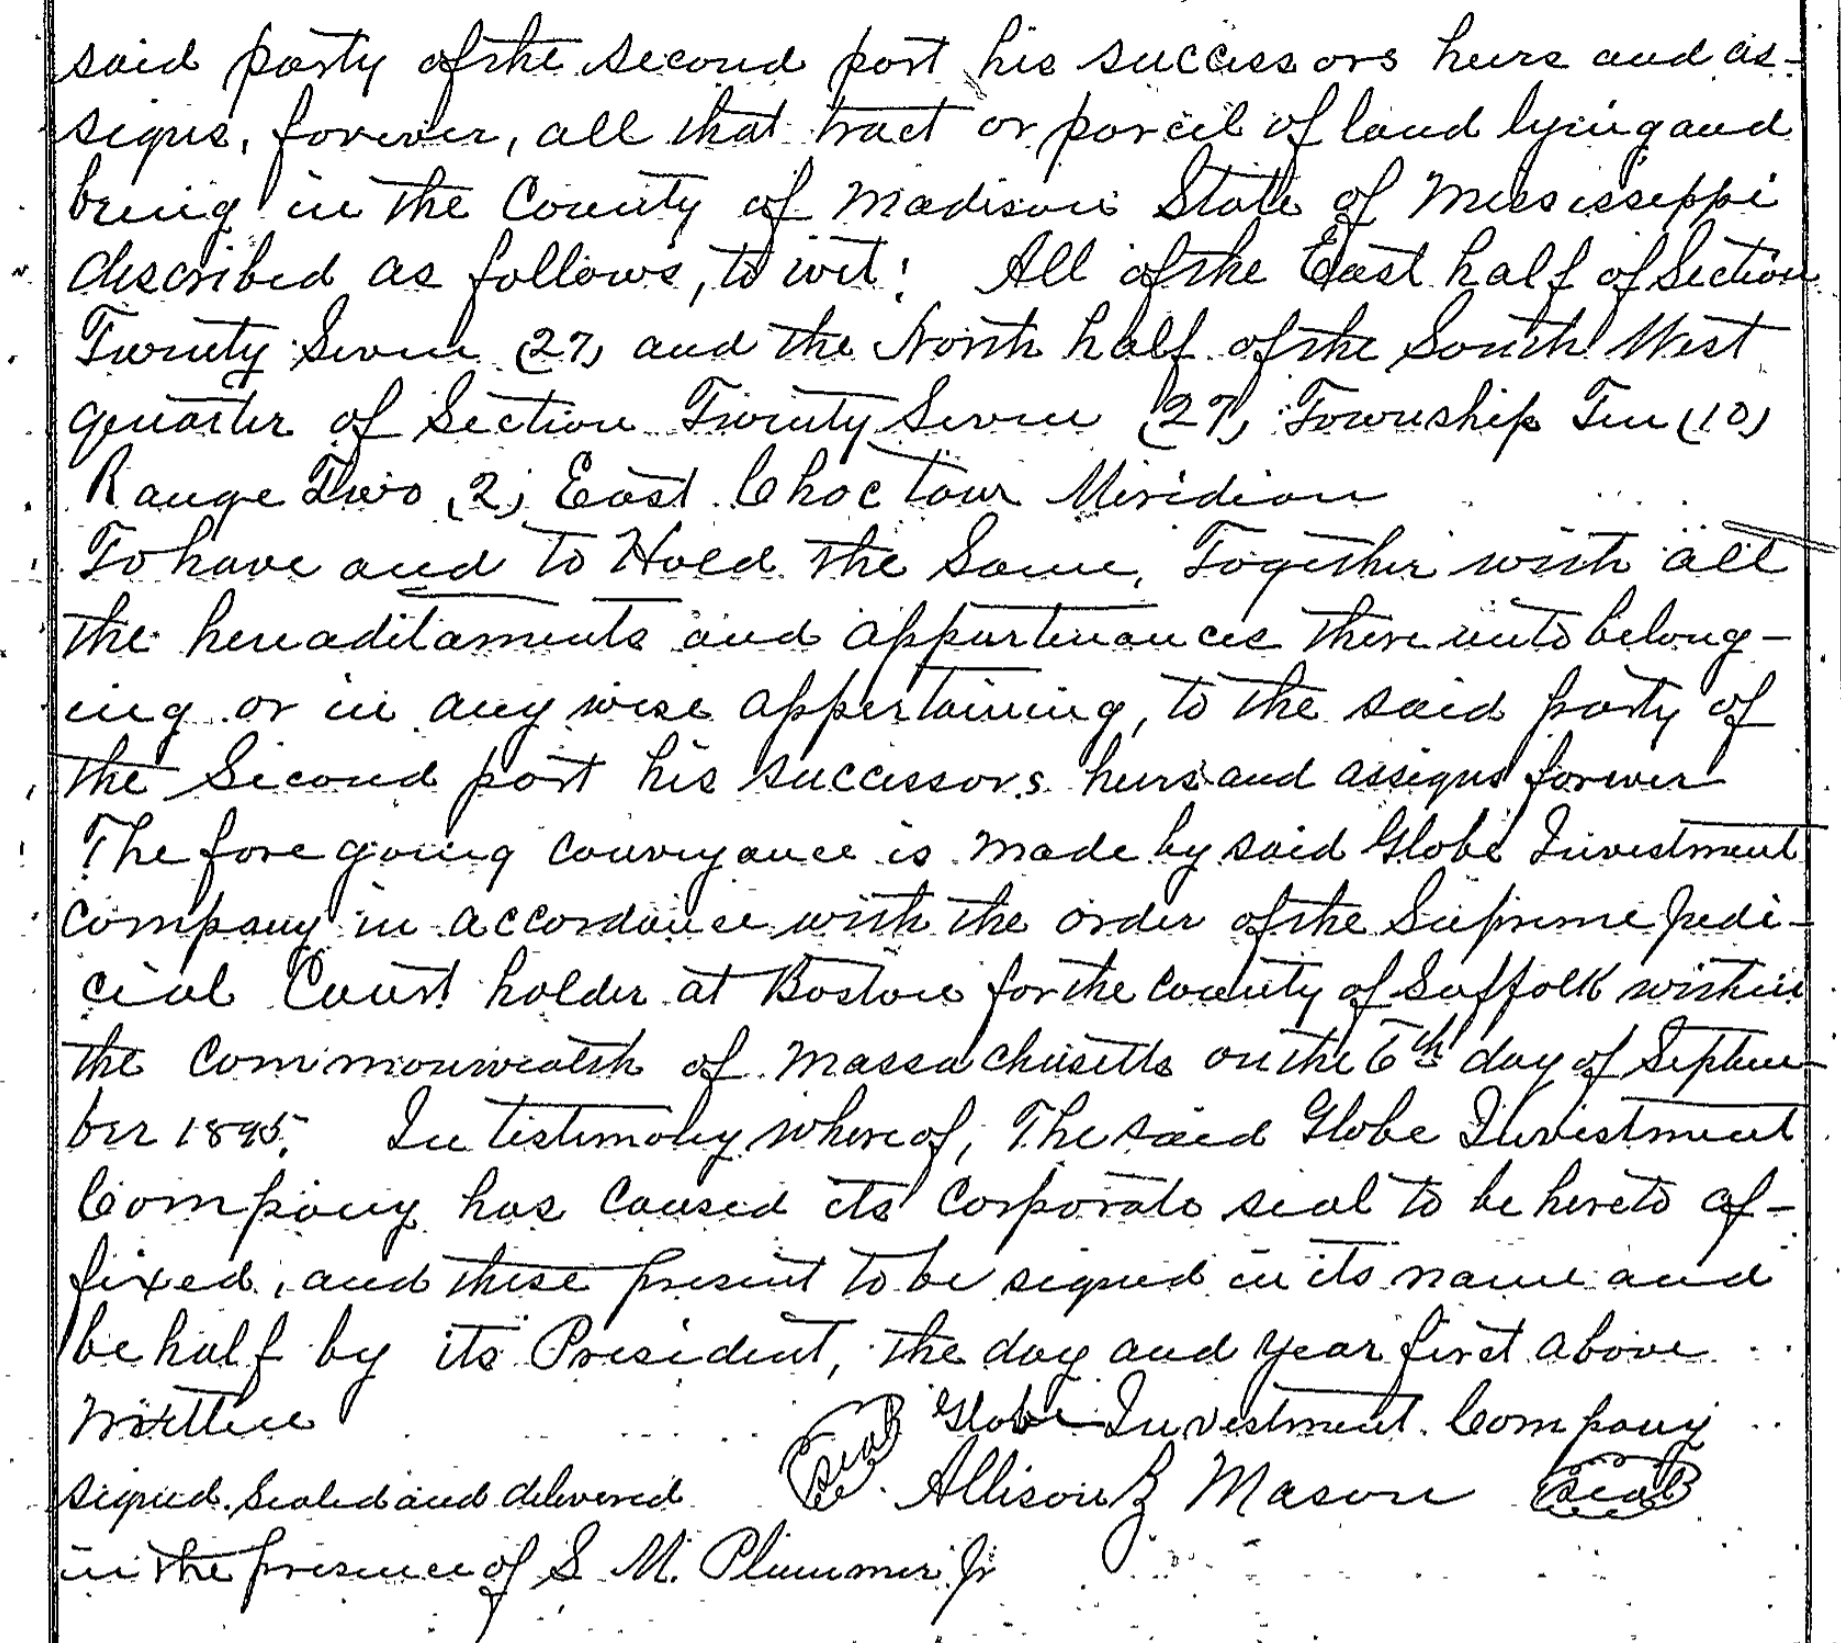 said party of the second part his successors heirs and as-
signs, forever, all that tract or parcel of land lying and
being in the County of Madison State of Mississippi
described as follows, to wit: All of the East half of Section
Twenty Seven (27) and the North half of the South West
quarter of Section Twenty Seven (27) Township Ten (10)
Range Two (2) East Choctaw Meridian
To have and to Hold the Same, Together with all
the hereaditaments and appurtenances there unto belong-
ing or in any wise appertaining, to the said party of
the Second part his successors heirs and assigns forever
The foregoing conveyance is made by said Globe Investment
Company in accordance with the order of the Supreme Judi-
cial Court holden at Boston for the County of Suffolk within
the Commonwealth of Massachusetts on the 6th day of Septem-
ber 1895. In testimony whereof, The said Globe Investment
Company has caused its corporate seal to be hereto af-
fixed, and these present to be signed in its name and
behalf by its President, the day and year first above
Written Seal Globe Investment Company
Signed, Sealed and delivered Allison Z Mason Seal
in the presence of S. M. Plummer Jr